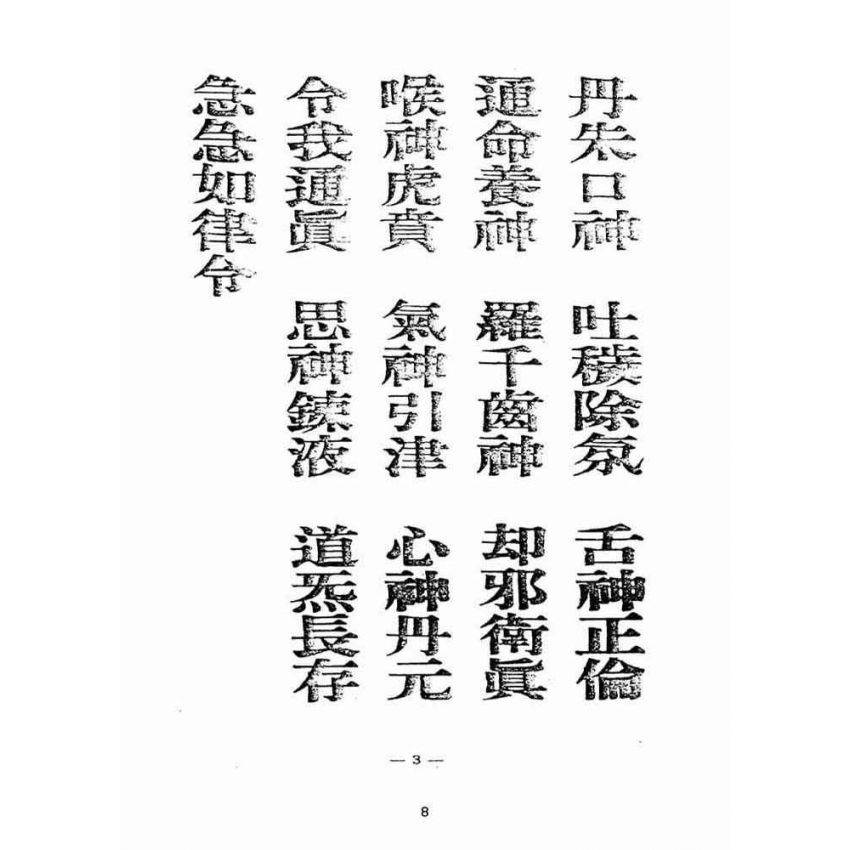 丹朱口神 吐穢除氛 舌神正倫
通命養神 羅千齒神 却邪衛眞
喉神虎賁 氣神引津 心神丹元
令我通眞 思神鍊液 道炁長存
急急如律令
— 3 —
8